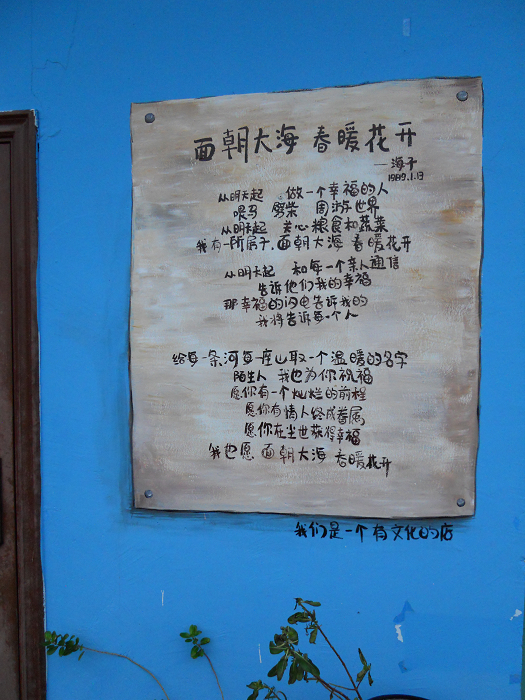 面朝大海 春暖花开
—海子
1989.1.13
从明天起 做一个幸福的人
喂马 劈柴 周游世界
从明天起 关心粮食和蔬菜
我有一所房子,面朝大海 春暖花开
从明天起 和每一个亲人通信
告诉他们我的幸福
那幸福的闪电告诉我的
我将告诉每个人
给每一条河每一座山取一个温暖的名字
陌生人 我也为你祝福
愿你有一个灿烂的前程
愿你有情人终成眷属
愿你在尘世获得幸福
我也愿 面朝大海 春暖花开
我们是一个有文化的店